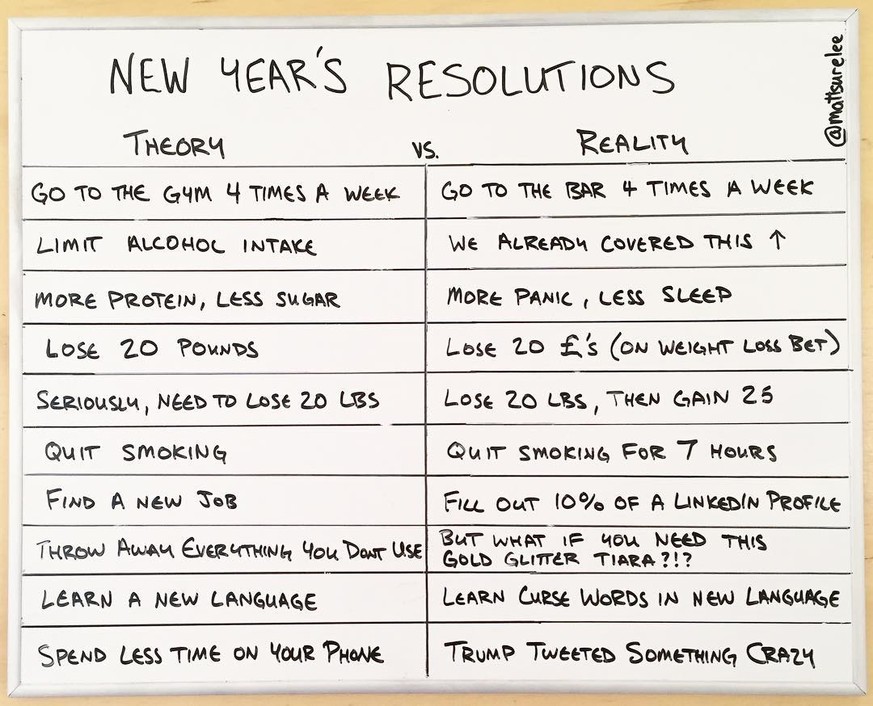 NEW YEAR'S RESOLUTIONS
@mattsurelee
THEORY VS. REALITY
GO TO THE GYM 4 TIMES A WEEK
GO TO THE BAR 4 TIMES A WEEK
LIMIT ALCOHOL INTAKE
WE ALREADY COVERED THIS ↑
MORE PROTEIN, LESS SUGAR
MORE PANIC, LESS SLEEP
LOSE 20 POUNDS
LOSE 20 £'S (ON WEIGHT LOSS BET)
SERIOUSLY, NEED TO LOSE 20 LBS
LOSE 20 LBS, THEN GAIN 25
QUIT SMOKING
QUIT SMOKING FOR 7 HOURS
FIND A NEW JOB
FILL OUT 10% OF A LINKEDIN PROFILE
THROW AWAY EVERYTHING YOU DONT USE
BUT WHAT IF YOU NEED THIS
GOLD GLITTER TIARA?!?
LEARN A NEW LANGUAGE
LEARN CURSE WORDS IN NEW LANGUAGE
SPEND LESS TIME ON YOUR PHONE
TRUMP TWEETED SOMETHING CRAZY